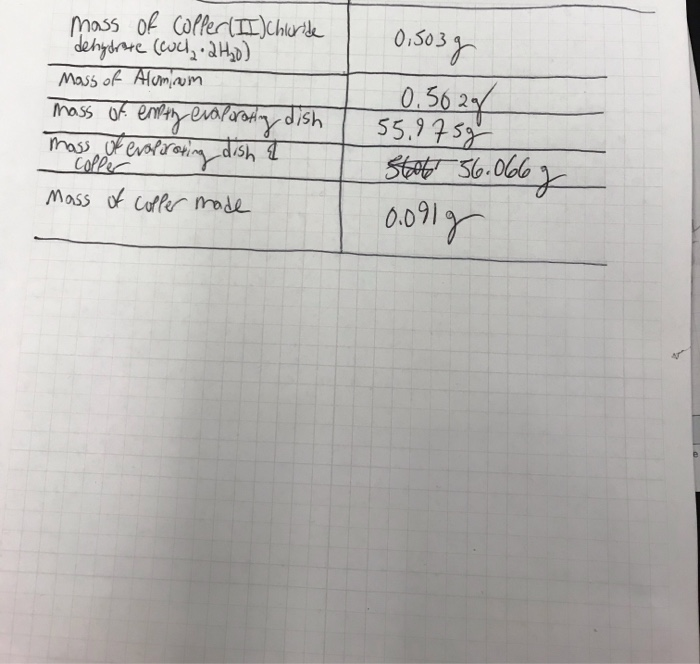 Mass of Copper(II)Chloride 0.503g
dehydrate (CuCl2·2H2O)
Mass of Aluminum 0.562g
Mass of empty evaporating dish 55.975g
Mass of evaporating dish & 56.066g
Copper
Mass of copper made 0.091g